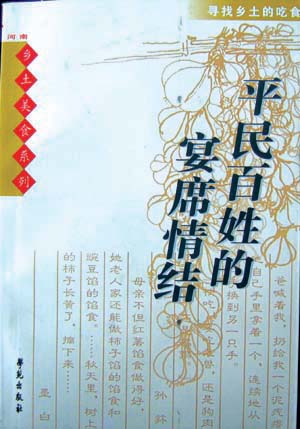 寻找乡土的吃食
河南
乡土美食系列
平民百姓的
宴席情结
爸喊着我,扔给我一个泥疙瘩
自己手里拿着一个,连续地从
换到另一只手。
还是狗肉
孙荪
母亲不但红薯馅食做得好,
她老人家还能做柿子馅的馅食和
豌豆馅的馅食。……秋天里,树上
的柿子长黄了,摘下来……
墨白
学苑出版社